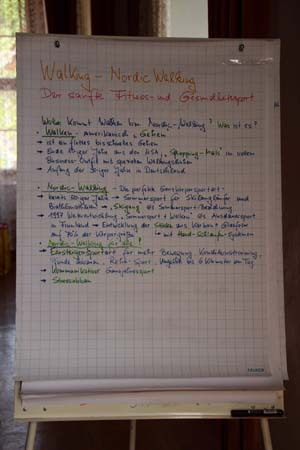 Walking - Nordic Walking
Der sanfte Fitness- und Gesundheitssport
Woher kommt Walken bzw. Nordic-Walking? Was ist es?
• Walken - amerikanisch, Gehen
→ ist ein flottes bis schnelles Gehen
• Ende 80iger Jahre aus den USA, "Shopping-Malls" im
Business-Outfit mit speziellen
→ Anfang der 90iger Jahre in Deutschland
• Nordic-Walking - Die perfekte Ganzkörpersportart
• bereits 50iger Jahre → Sommersport für Skilangläufer und
→ "Skigang" als Sommersport
• 1997 Weiterentwicklung "Sommersport + Walken" als Ausdauersport
in Finnland → Entwicklung der Stöcke aus Carbon + Glasfaser
auf 70% der Körpergröße → mit Hand-Schlaufen-Systemen
• Nordic-Walking für alle!
→ Einsteigersportart für mehr Bewegung, Konditionstraining,
6 Kilometer am Tag
→ Kommunikativer Ganzjahressport
→ Stressabbau